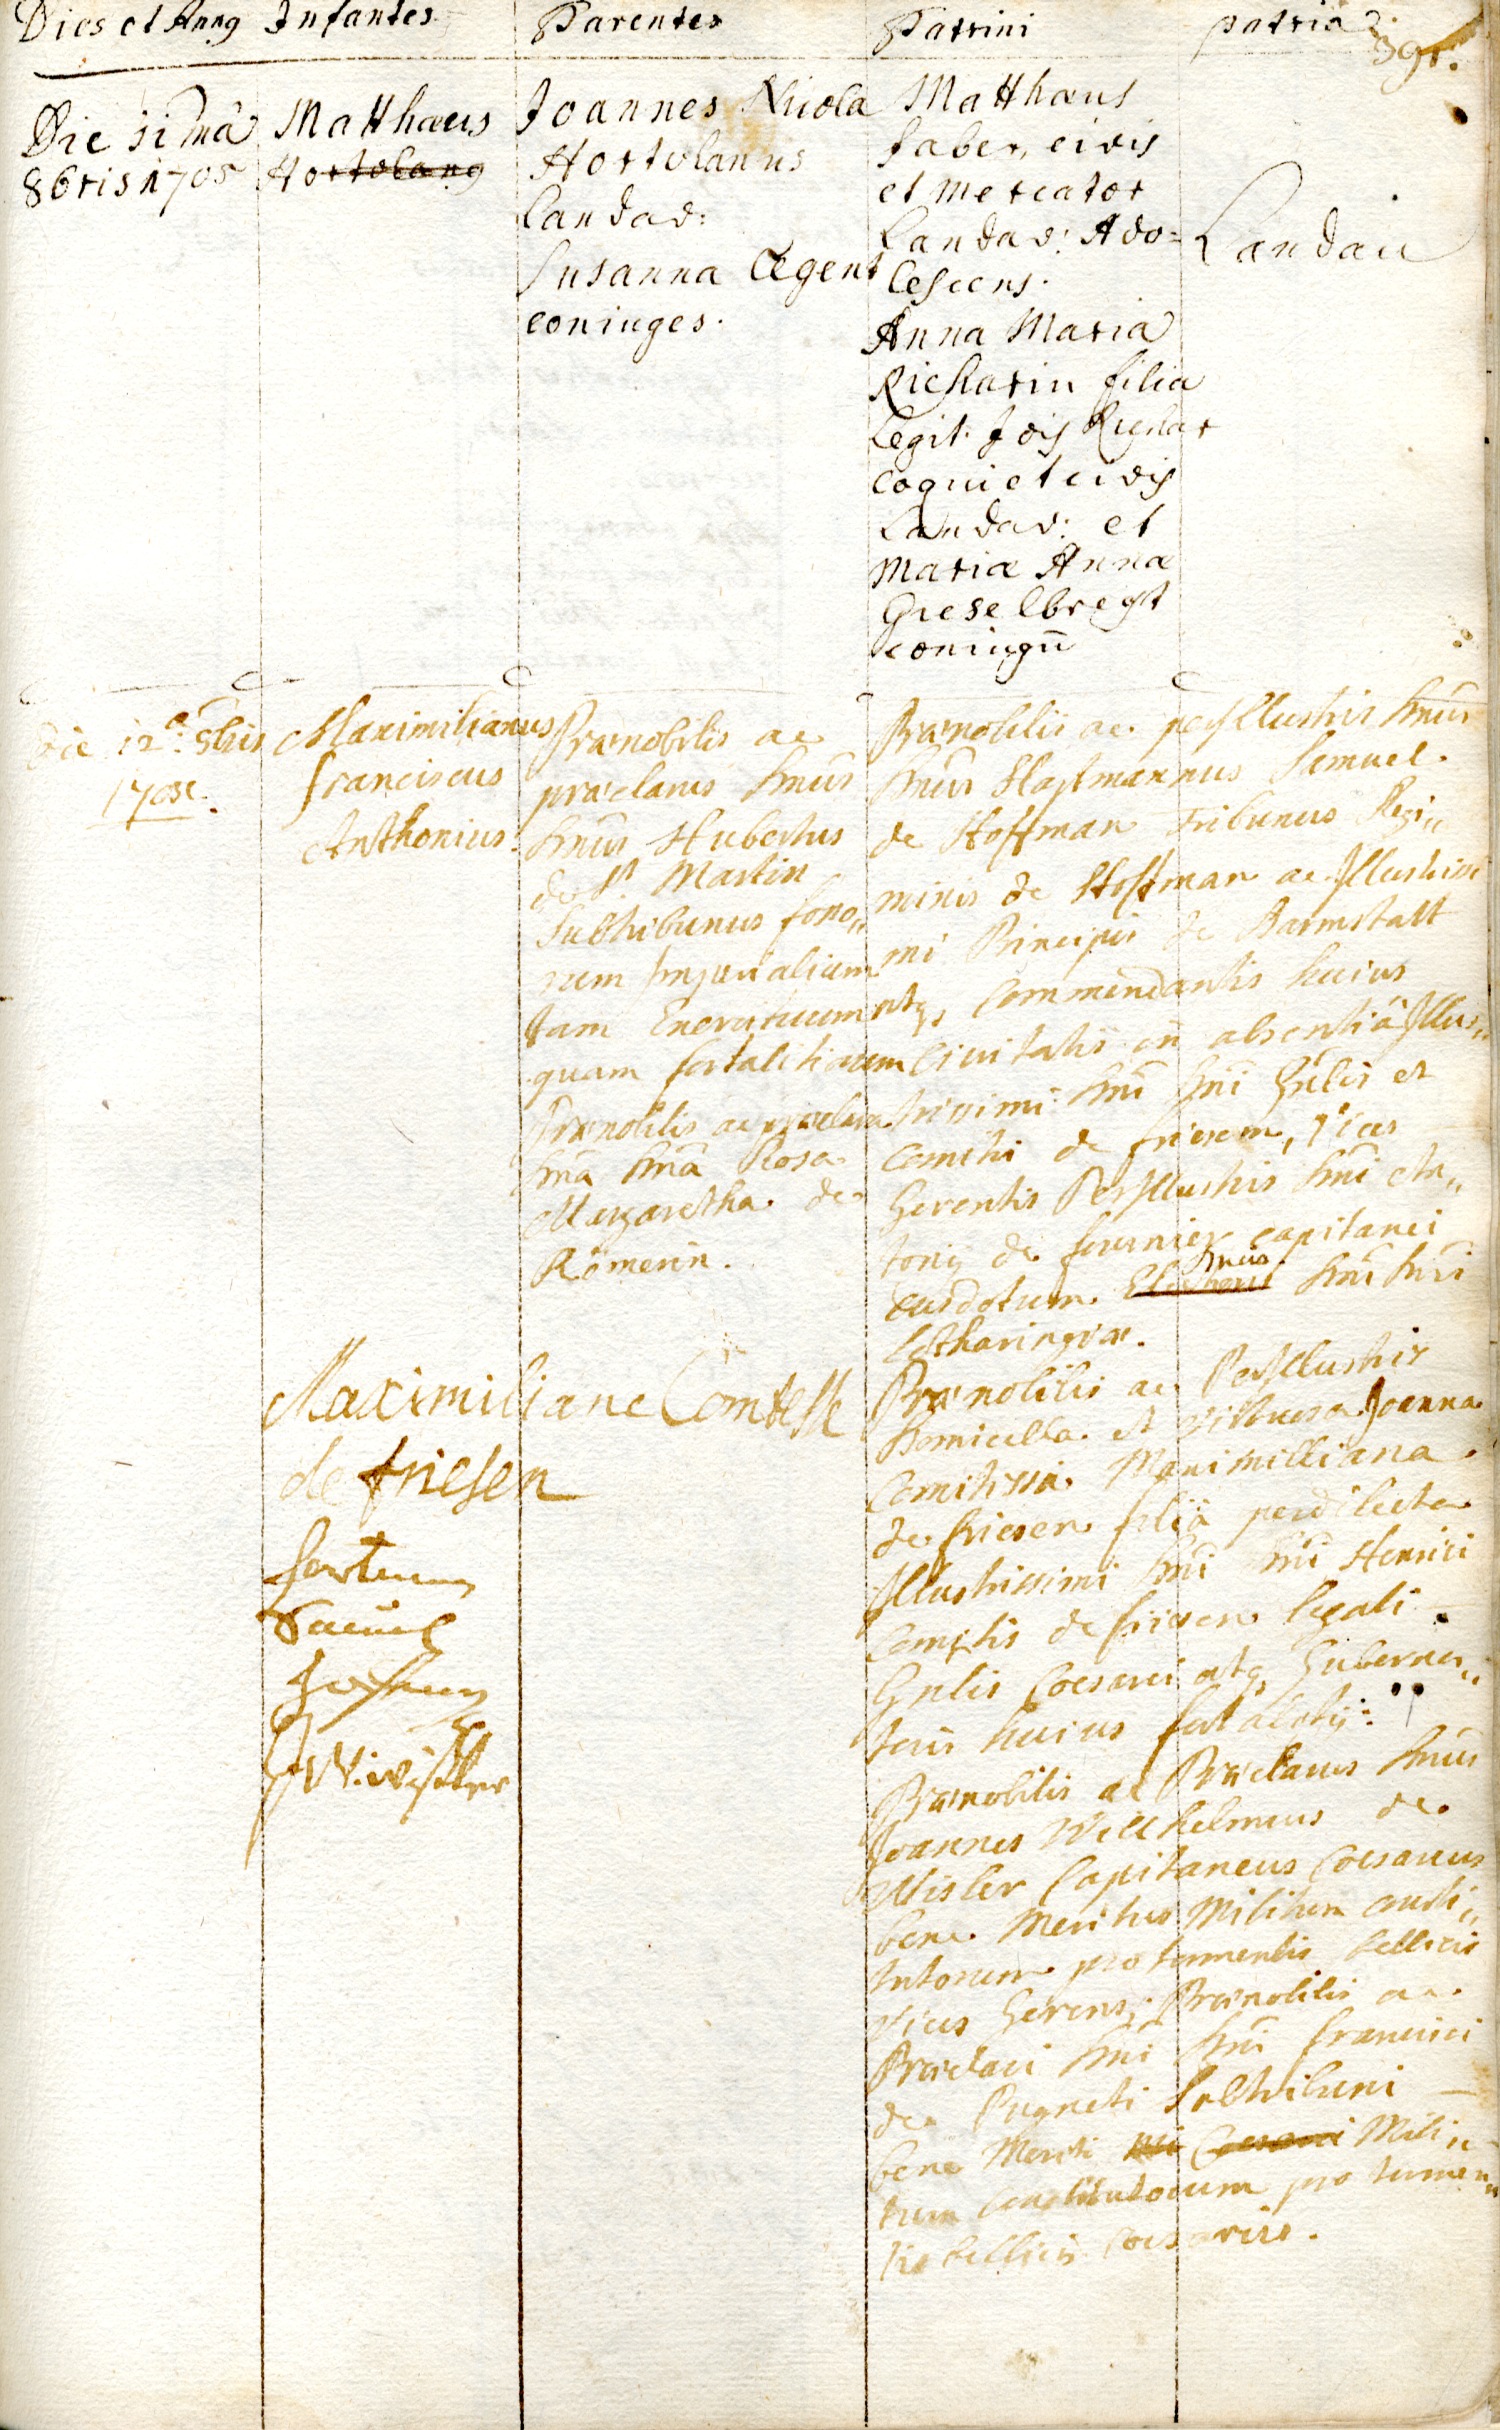 Dies et Anng Infantes Parentes Patrini patria
391.
Die 11ma
8bris 1705
Matthæus
Hortolang
Joannes Nicola
Hortulanus
Landav:
Susanna Ægent
coniuges.
Matthæus
faber, civis
et Mercator
Landav: Ado=
lescens.
Anna Maria
Richarin filia
legit. Jois Richar
coqui et civis
Landav: et
Mariæ Annæ
Gieselbreght
coniugū
Landau
Die 12a 8bris
Maximilianus
franciscus
Anthonius:
Prænobilis ac
præclarus Dnūs
Dnūs Hubertus
de St Martin
Subtribunus
Imperialium
tam Exercituum
quam fortalitiorum
Prænobilis ac præclara
Dnā Dnā Rosa
Margaretha de
Römerin.
Prænobilis ac perIllustris Dnūs
Dnūs Hastmannus Samuel
de Hoffman Tribunus Regi„
minis de Hoffman ac Illustrissi
mi Principis de Darmstatt
atq, Commendantis huius
Civitatis in absentiâ Illus„
trissimi Dnī Dnī Gnlis et
Comitis de friesen, Vices
Gerentis PerIllustris Dnī An„
tonij de fournier capitanei
Dnī Dnī
Lotharingiæ.
Prænobilis ac PerIllustris
Domicella et virtuosa Joanna
Comitissa Maximilliana
de friesen filia perdilecta
Illustrissimi Dnī Dnī Henrici
Comitis de friesen legati
Gnlis Cæsarei atq, Guberna„
toris huius fortalitij:
Prænobilis ac Præclarus Dnūs
Joannes Willhelmus de
Wisler Capitaneus Cæsareus
bene Meritus Militum consti„
tutorum pro tormentis bellicis
vices Gerens; Prænobilis ac
Præclari Dnī Dnī francisci
de Pugneti Subtribuni
bene Meriti Mili„
tum constitutorum pro tormen„
tis bellicis Cæsareis.
Maximiliane Comtesse
de friesen